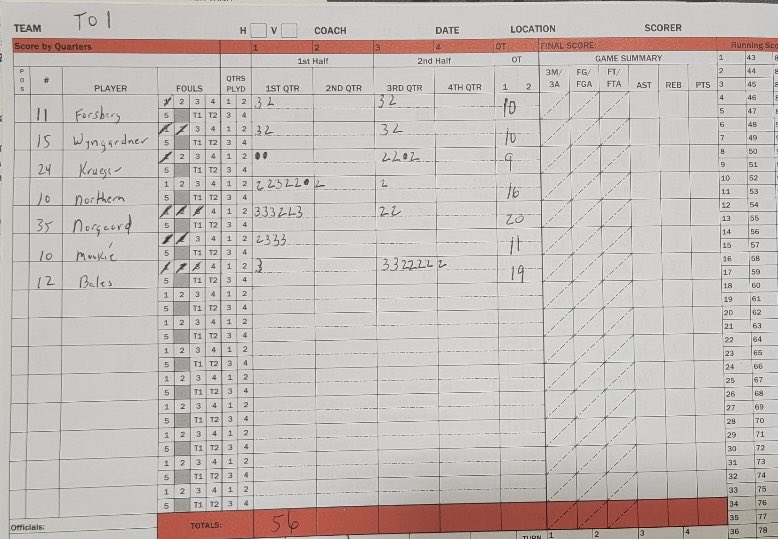 TEAM TO1 H V COACH DATE LOCATION SCORER
Score by Quarters 1 2 3 4 OT FINAL SCORE: Running Sco
1st Half 2nd Half OT GAME SUMMARY 1 43
POS # PLAYER FOULS QTRS PLYD 1ST QTR 2ND QTR 3RD QTR 4TH QTR 1 2 3M/3A FG/FGA FT/FTA AST REB PTS 2 44
3 45
1 2 3 4 1 2 32 32 4 46
11 Forsberg 5 T1 T2 3 4 10 5 47
1 2 3 4 1 2 32 32 6 48
15 Wyngardner 5 T1 T2 3 4 10 7 49
1 2 3 4 1 2 8 50
24 Krueger 5 T1 T2 3 4 9 9 51
1 2 3 4 1 2 2 10 52
10 Northern 5 T1 T2 3 4 16 11 53
1 2 3 4 1 2 22 12 54
35 Norgaard 5 T1 T2 3 4 20 13 55
1 2 3 4 1 2 2333 14 56
10 Mookie 5 T1 T2 3 4 11 15 57
1 2 3 4 1 2 3 3322222 16 58
12 Bales 5 T1 T2 3 4 19 17 59
1 2 3 4 1 2 18 60
5 T1 T2 3 4 19 61
1 2 3 4 1 2 20 62
5 T1 T2 3 4 21 63
1 2 3 4 1 2 22 64
5 T1 T2 3 4 23 65
1 2 3 4 1 2 24 66
5 T1 T2 3 4 25 67
1 2 3 4 1 2 26 68
5 T1 T2 3 4 27 69
1 2 3 4 1 2 28 70
5 T1 T2 3 4 29 71
1 2 3 4 1 2 30 72
5 T1 T2 3 4 31 73
1 2 3 4 1 2 32 74
5 T1 T2 3 4 33 75
34 76
Officials: TOTALS: 56 35 77
TURN 1 2 3 4 36 78